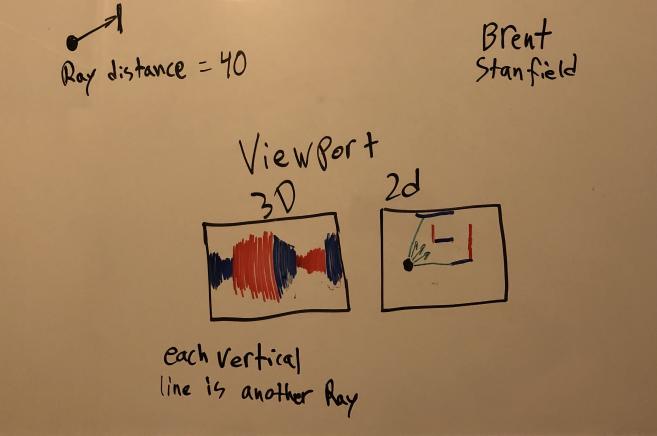 Ray distance = 40
Brent
Stanfield
Viewport
3D
2d
each vertical
line is another Ray